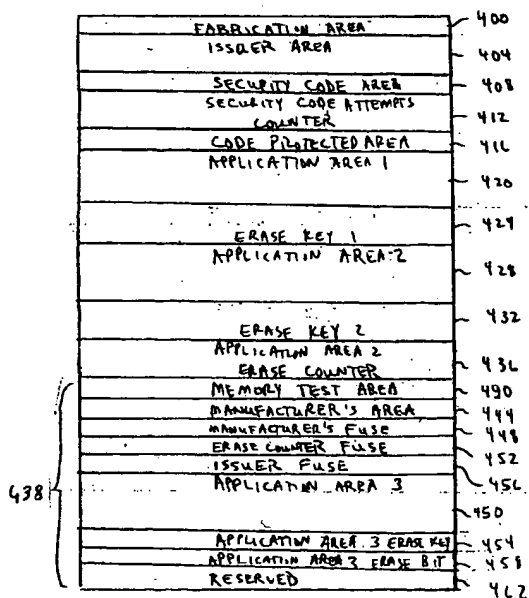 FABRICATION AREA 400
ISSUER AREA 404
SECURITY CODE AREA 408
SECURITY CODE ATTEMPTS
COUNTER 412
CODE PROTECTED AREA 416
APPLICATION AREA 1
420
424
ERASE KEY 1
APPLICATION AREA 2
428
432
ERASE KEY 2
APPLICATION AREA 2
ERASE COUNTER 436
MEMORY TEST AREA 490
MANUFACTURER'S AREA 444
MANUFACTURER'S FUSE 448
ERASE COUNTER FUSE 452
ISSUER FUSE 456
APPLICATION AREA 3
438
450
APPLICATION AREA 3 ERASE KEY 454
APPLICATION AREA 3 ERASE BIT 458
RESERVED 462